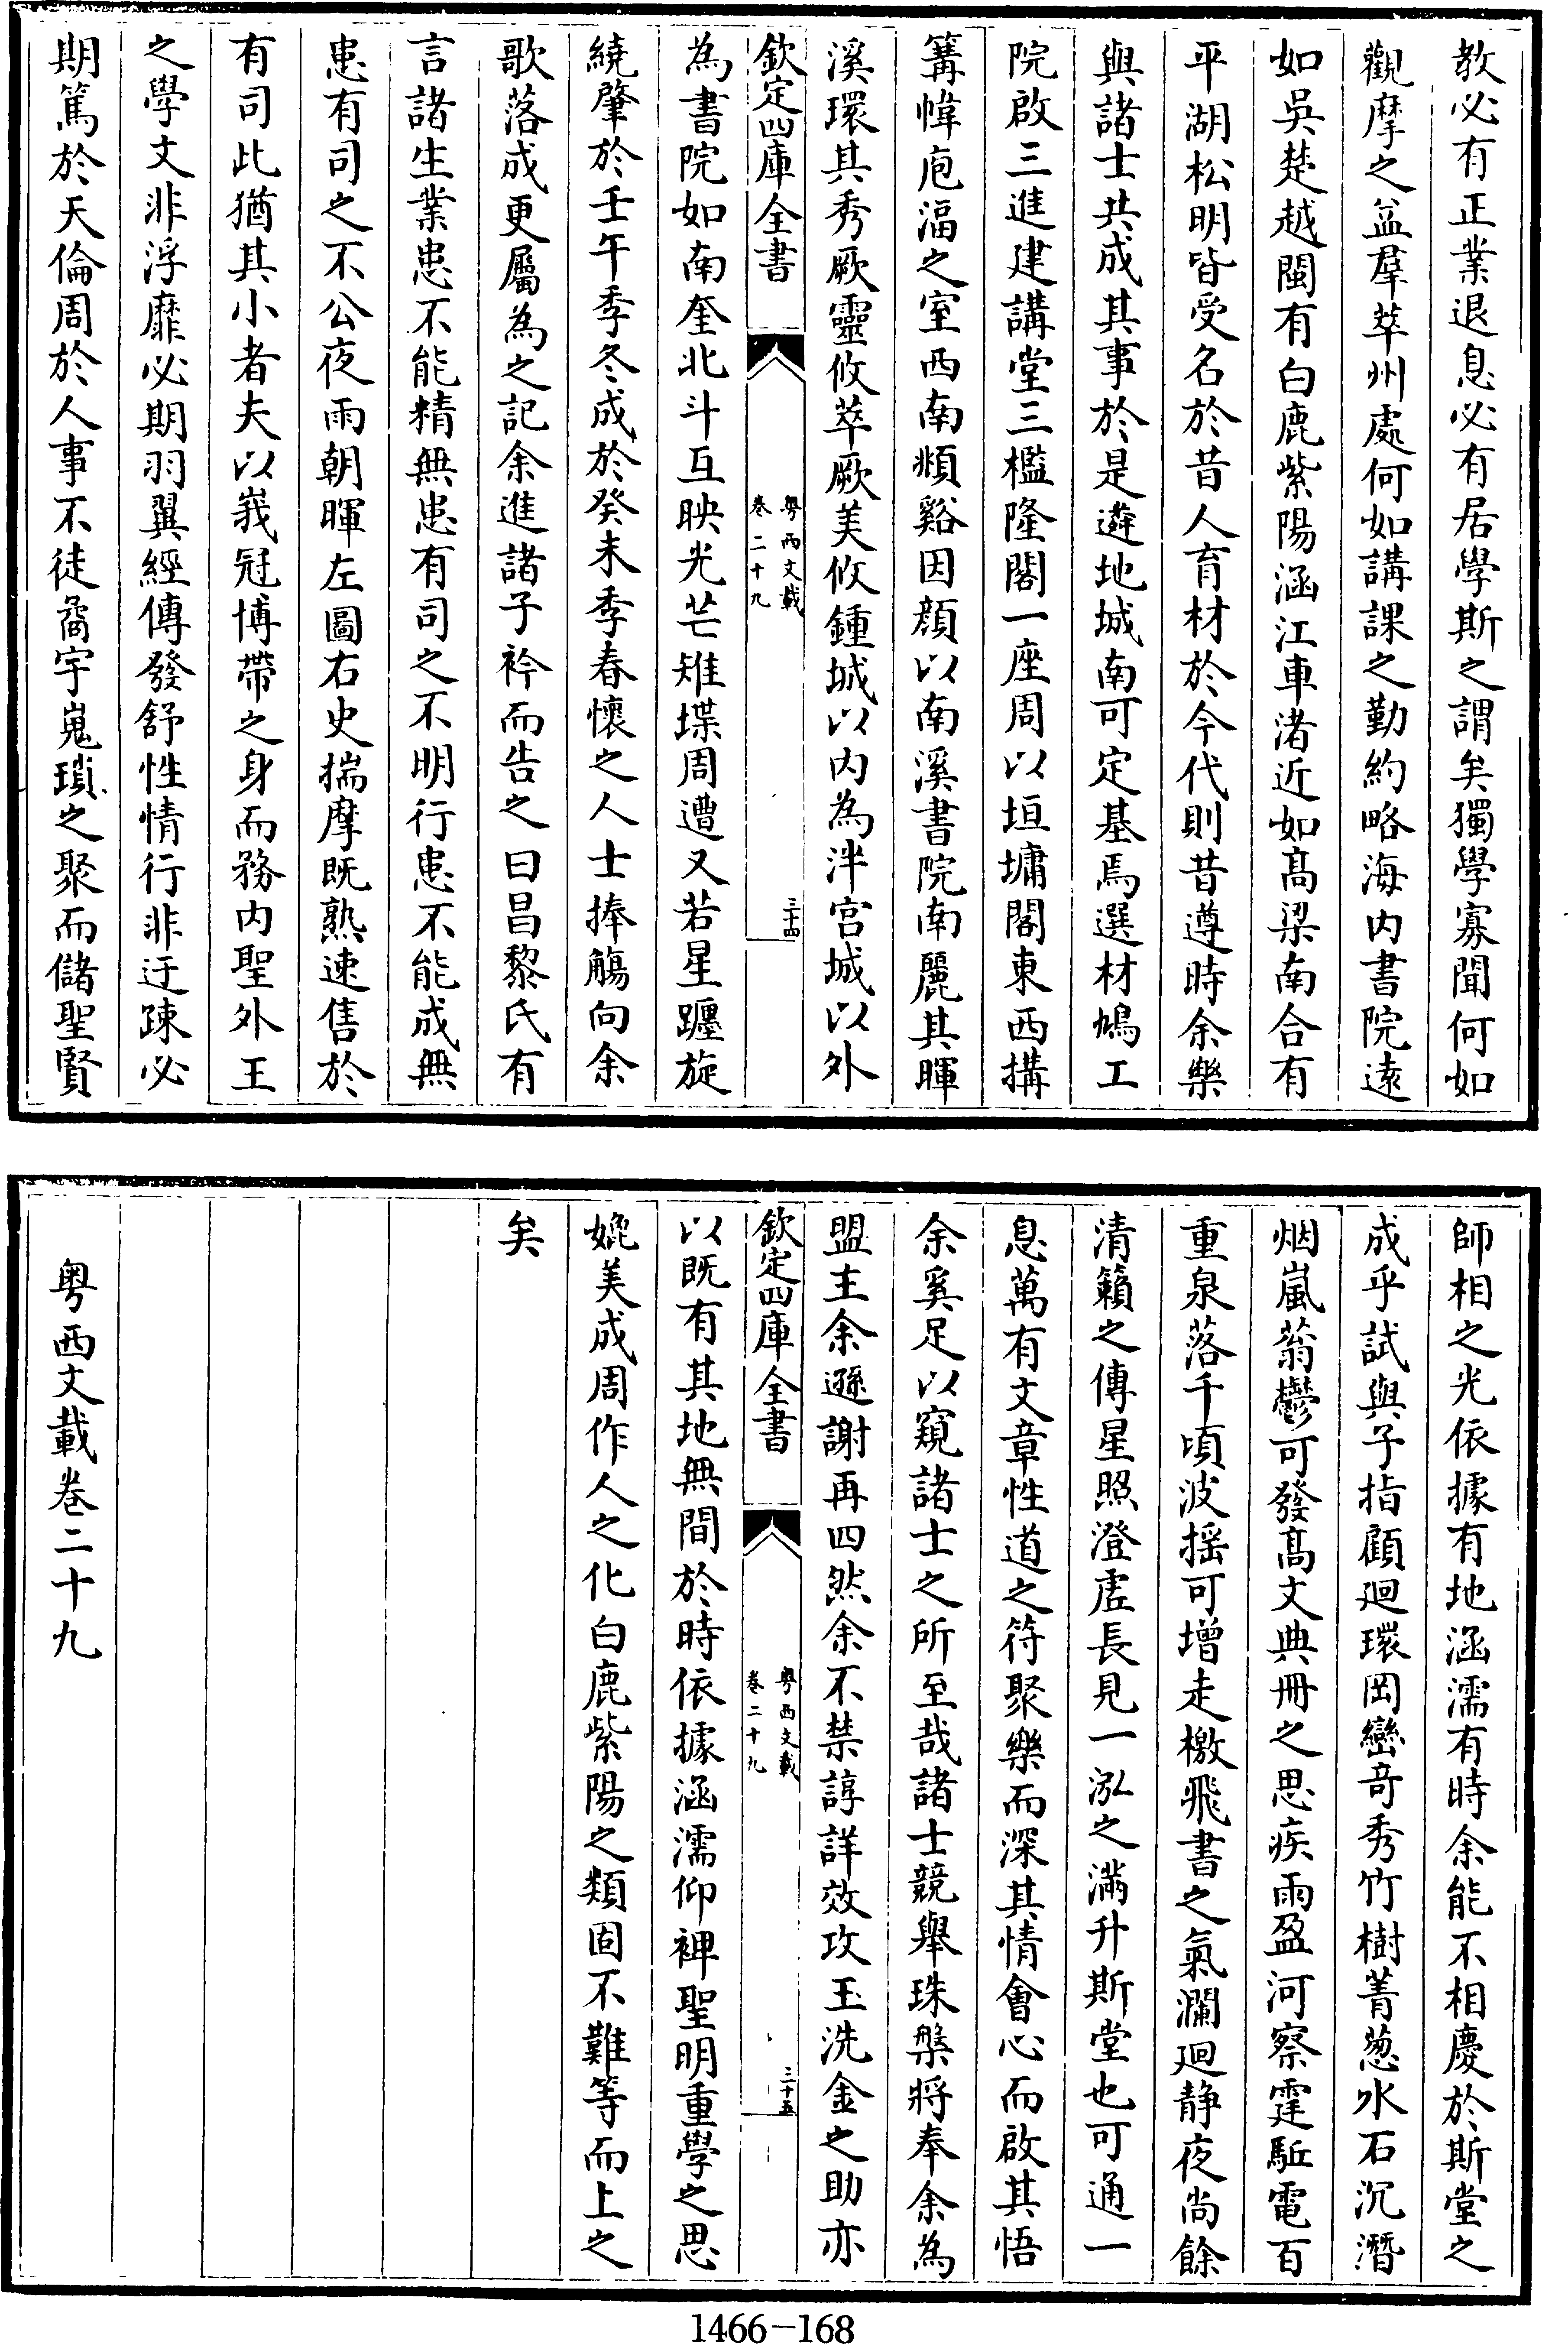 教必有正業退息必有居學斯之謂矣獨學寡聞何如
觀摩之益羣萃州處何如講課之勤約略海内書院逺
如吳楚越閩有白鹿紫陽涵江車渚近如髙梁南合有
平湖松明皆受名於昔人育材於今代則昔遵時余樂
與諸士共成其事於是遴地城南可定基焉選材鳩工
院啟三進建講堂三檻隆閣一座周以垣墉閣東西搆
篝幃庖湢之室西南頫谿因顔以南溪書院南麗其暉
溪環其秀厥靈攸萃厥美攸鍾城以内為泮宫城以外
欽定四庫全書
粤西文載
卷二十九
三十四
為書院如南奎北斗互映光芒雉堞周遭又若星躔旋
繞肇於壬午季冬成於癸未季春懷之人士捧觴向余
歌落成更屬為之記余進諸子衿而告之曰昌黎氏有
言諸生業患不能精無患有司之不明行患不能成無
患有司之不公夜雨朝暉左圖右史揣摩既熟速售於
有司此猶其小者夫以峩冠博帶之身而務内聖外王
之學文非浮靡必期羽翼經傳發舒性情行非迂踈必
期篤於天倫周於人事不徒矞宇嵬瑣之聚而儲聖賢
師相之光依據有地涵濡有時余能不相慶於斯堂之
成乎試與子指顧廻環岡巒竒秀竹樹菁葱水石沉潛
烟嵐蓊鬱可發髙文典冊之思疾雨盈河察霆駈電百
重泉落千頃波揺可增走檄飛書之氣瀾廻静夜尚餘
清籟之傳星照澄虛長見一泓之滿升斯堂也可通一
息萬有文章性道之符聚樂而深其情會心而啟其悟
余奚足以窺諸士之所至哉諸士競舉珠槃將奉余為
盟主余遜謝再四然余不禁諄詳效攻玉洗金之助亦
欽定四庫全書
粤西文載
卷二十九
三十五
以既有其地無間於時依據涵濡仰裨聖明重學之思
媲美成周作人之化白鹿紫陽之類固不難等而上之
矣
粤西文載卷二十九
1466-168